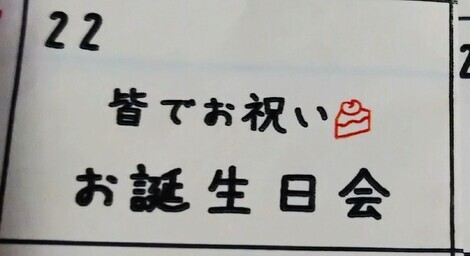 22
皆でお祝い
お誕生日会
2